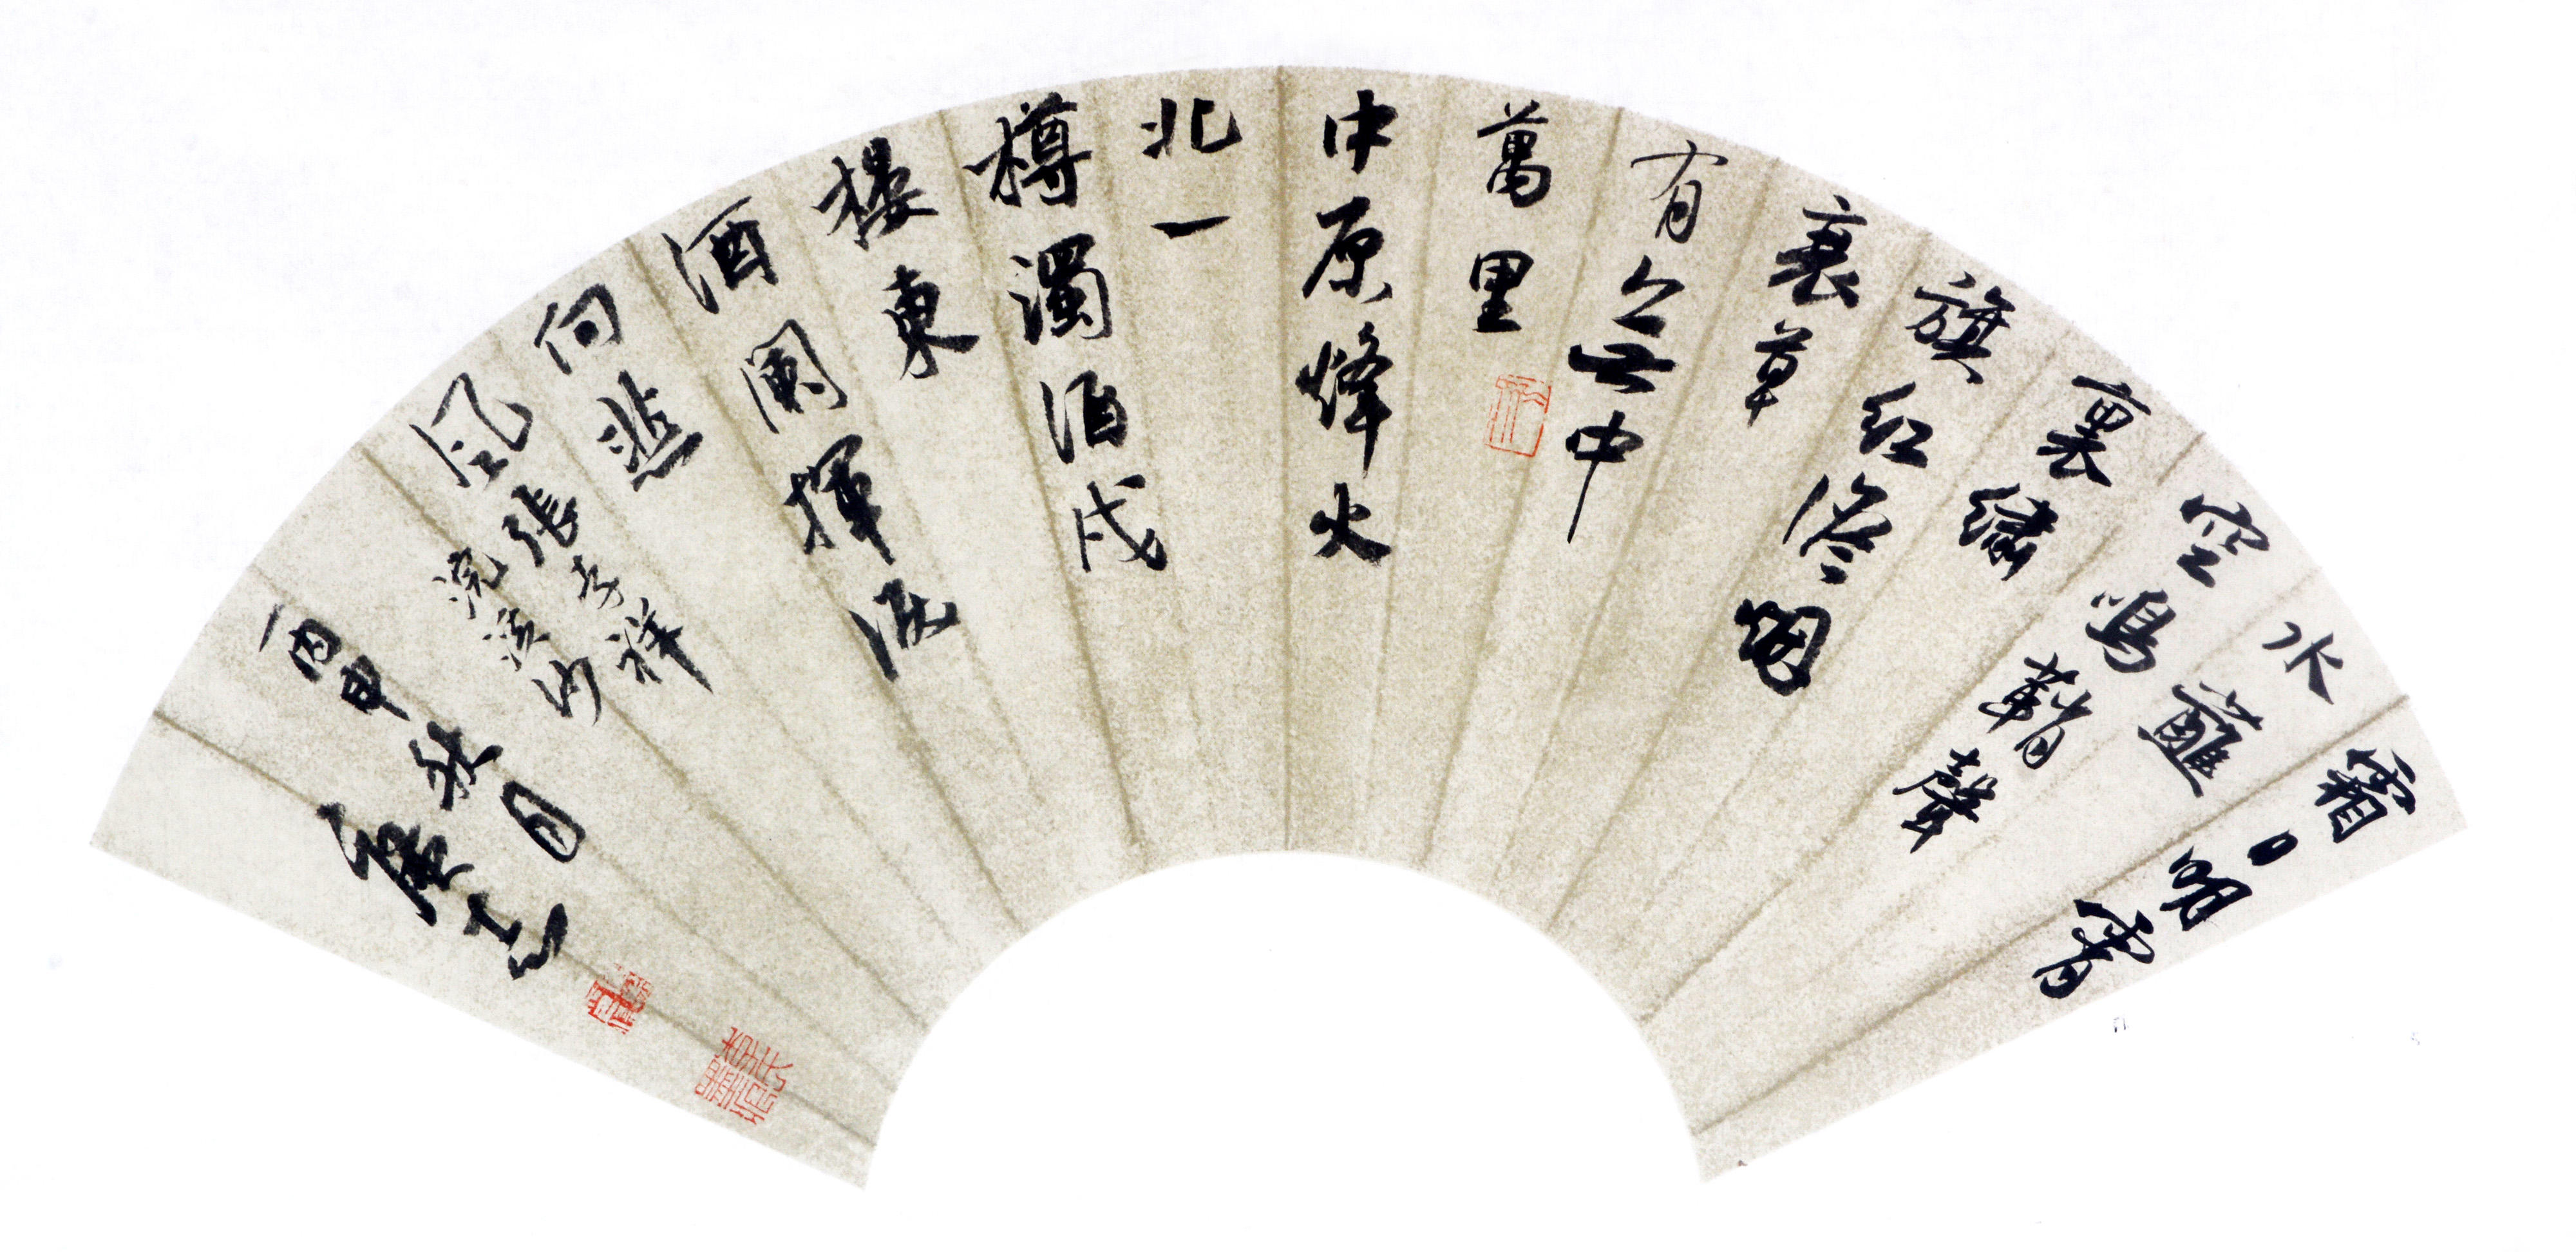 霜日明霄
水蘸
空鳴鞘聲
裏繡
旗紅澹烟
衰草
有無中
萬里
中原烽火
北一
樽濁酒戍
樓東
酒闌揮淚
向悲
風 張孝祥
浣溪沙
丙申秋月